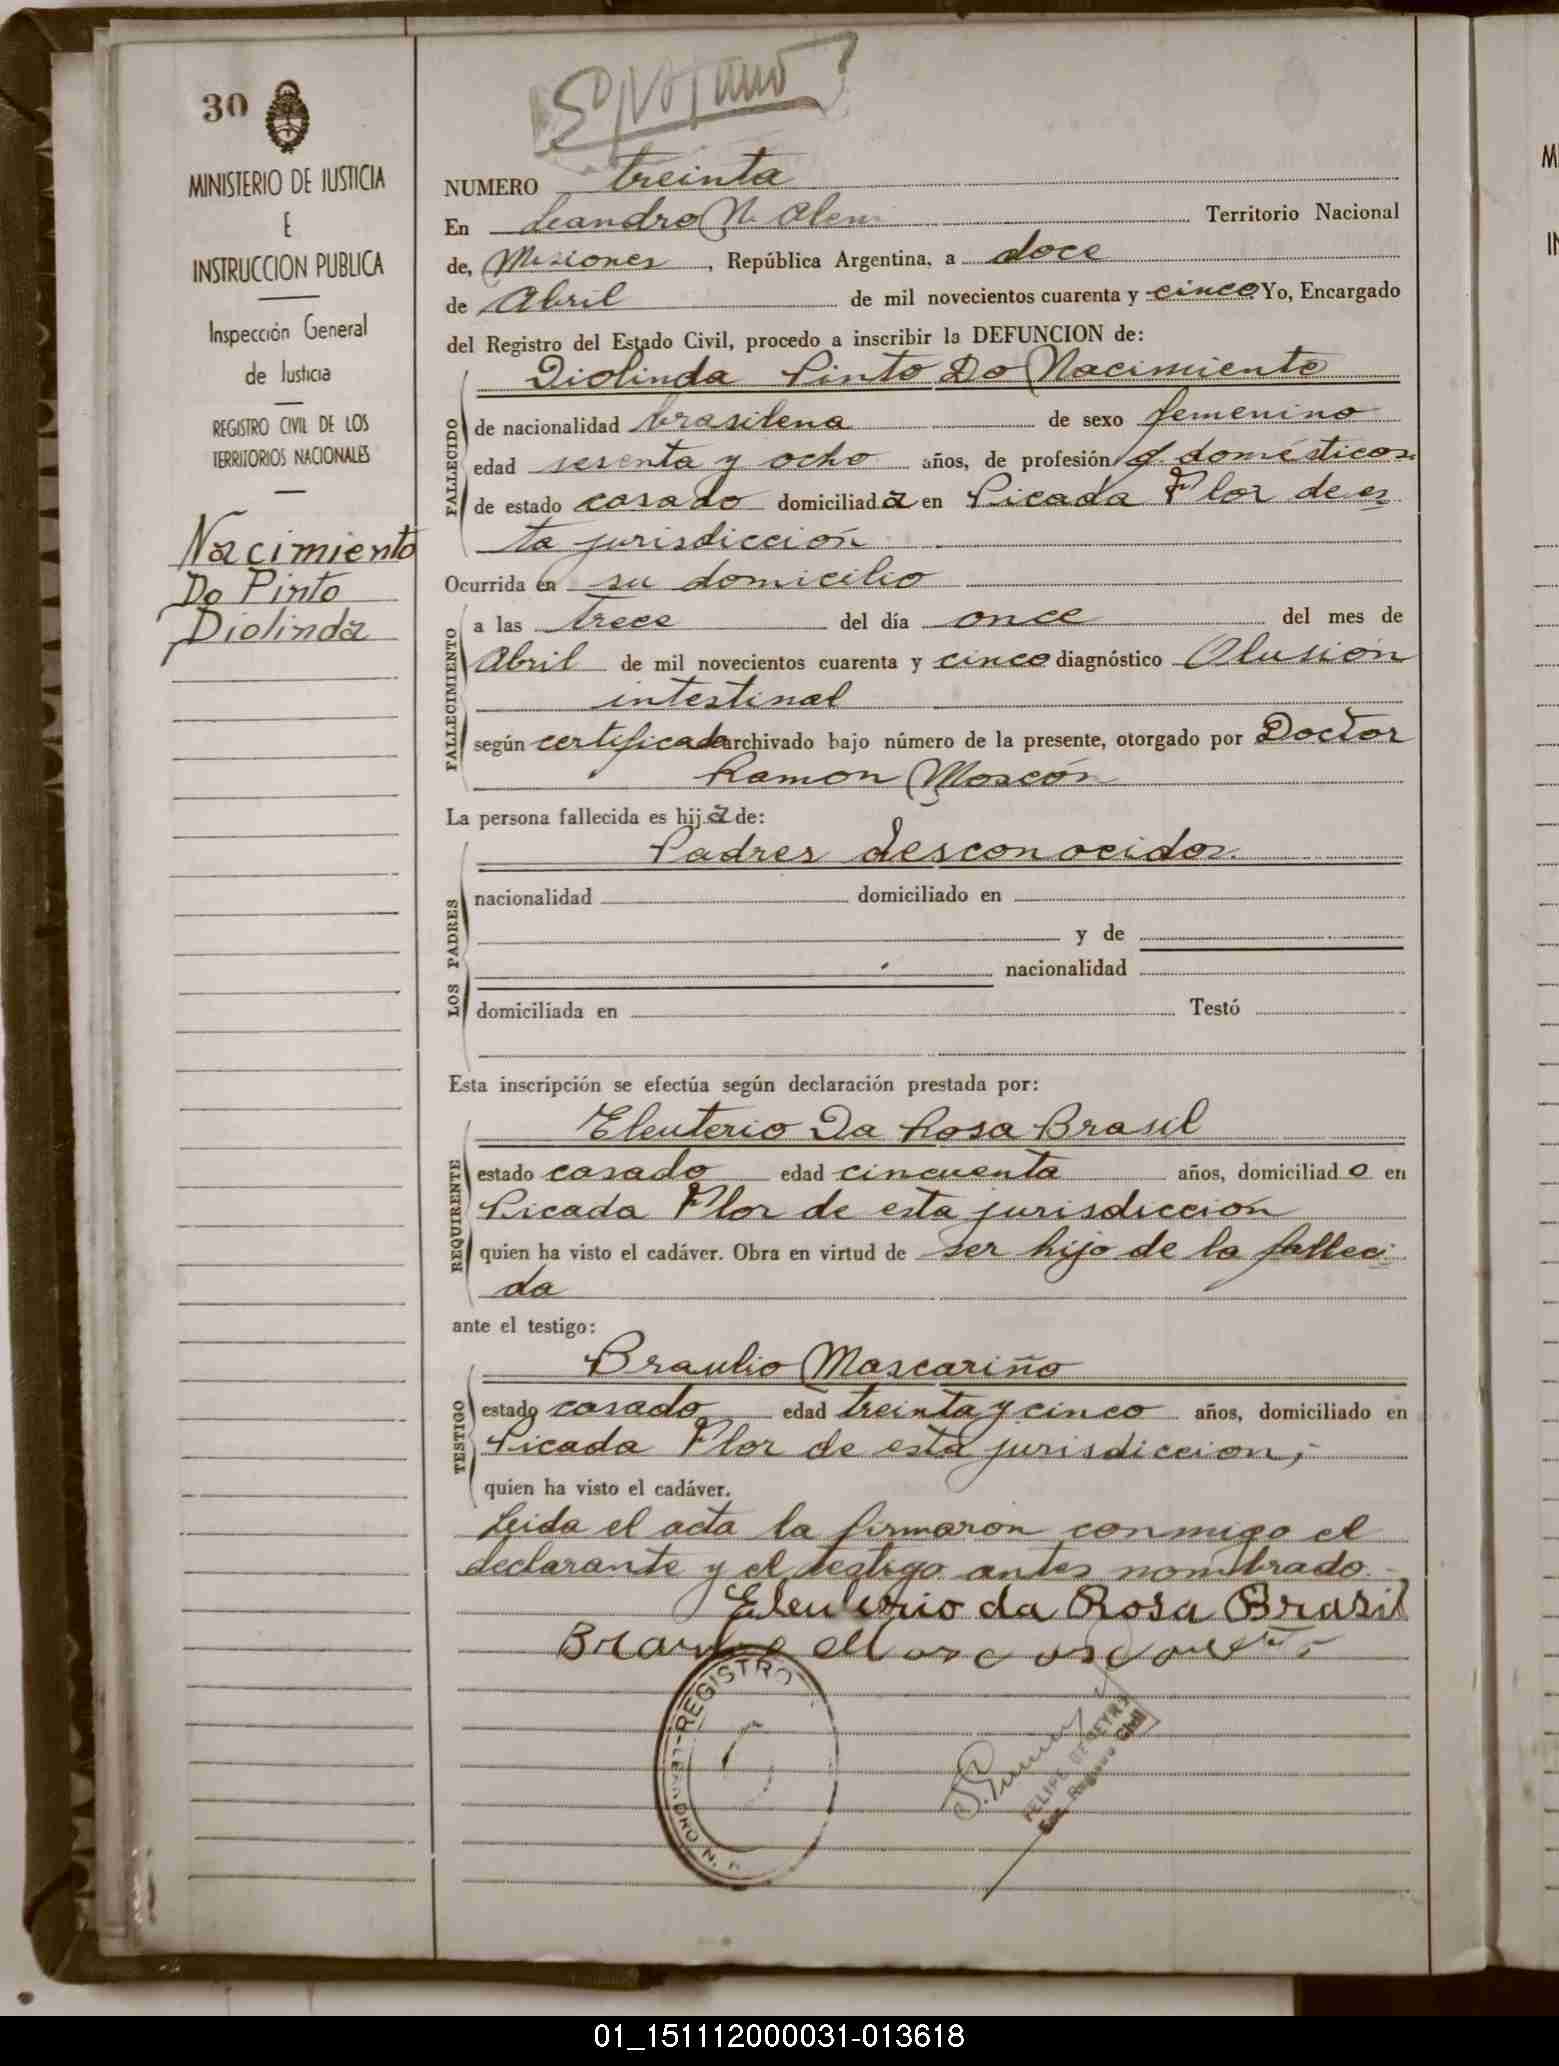 30
MINISTERIO DE JUSTICIA
E
INSTRUCCION PUBLICA
Inspección General
de Justicia
REGISTRO CIVIL DE LOS
TERRITORIOS NACIONALES
Nacimiento
Do Pinto
Diolinda
NUMERO treinta
En Leandro N. Alem Territorio Nacional
de, Misiones, República Argentina, a doce
de Abril de mil novecientos cuarenta y cinco Yo, Encargado
del Registro del Estado Civil, procedo a inscribir la DEFUNCION de:
Diolinda Pinto Do Nacimiento
FALLECIDO
de nacionalidad brasilena de sexo femenino
edad sesenta y ocho años, de profesión q. domésticos.
de estado casado domiciliada en Picada Flor de es
ta jurisdicción
Ocurrida en su domicilio
FALLECIMIENTO
a las trece del día once del mes de
Abril de mil novecientos cuarenta y cinco diagnóstico Olusión
intestinal
según certificado archivado bajo número de la presente, otorgado por Doctor
Ramon Moscón
La persona fallecida es hija de:
LOS PADRES
Padres desconocidos.
nacionalidad domiciliado en
y de
nacionalidad
domiciliada en Testó
Esta inscripción se efectúa según declaración prestada por:
REQUIRENTE
Eleuterio Da Rosa Brasil
estado casado edad cincuenta años, domiciliado en
Picada Flor de esta jurisdiccion
quien ha visto el cadáver. Obra en virtud de ser hijo de la falleci
da
ante el testigo:
TESTIGO
Braulio Mascariño
estado casado edad treinta y cinco años, domiciliado en
Picada Flor de esta jurisdiccion;-
quien ha visto el cadáver.
Leida el acta la firmaron conmigo el
declarante y el testigo antes nombrado.-
Eleuterio da Rosa Brazil
REGISTRO
LEANDRO N.
FELIPE
Enc. Registro Civil
01_151112000031-013618